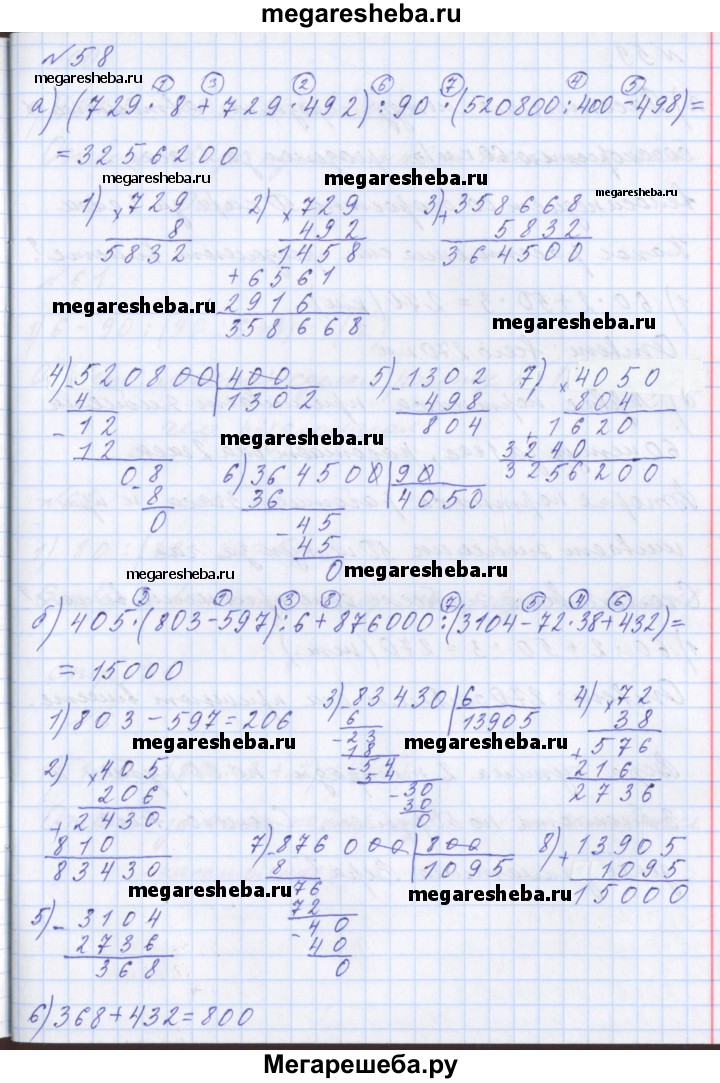 megaresheba.ru
№58
megaresheba.ru
① ③ ② ⑥ ⑦ ④ ⑤
а) (729·8+729·492):90·(520800:400-498)=
=3256200
megaresheba.ru megaresheba.ru megaresheba.ru
1) × 729
8
5832
2) × 729
492
1458
+ 6561
2916
358668
3) + 358668
5832
364500
megaresheba.ru megaresheba.ru
4) - 520800 400
4 1302
- 12
12
0 - 8
8
0
5) - 1302
498
804
7) × 4050
804
+ 1620
3240
3256200
megaresheba.ru
6) 364500 90
36 4050
- 45
45
0
megaresheba.ru
megaresheba.ru
② ① ③ ⑧ ⑦ ⑤ ④ ⑥
б) 405·(803-597):6+876000:(3104-72·38+432)=
=15000
1) 803-597=206
3) - 83430 6
6 13905
- 23
18
- 54
54
- 30
30
0
4) × 72
38
+ 576
216
2736
megaresheba.ru megaresheba.ru
2) × 405
206
+ 2430
810
83430
7) 876000 800
8 1095
76
72
- 40
40
0
8) + 13905
1095
15000
megaresheba.ru megaresheba.ru
5) - 3104
2736
368
6) 368+432=800
Мегарешеба.ру